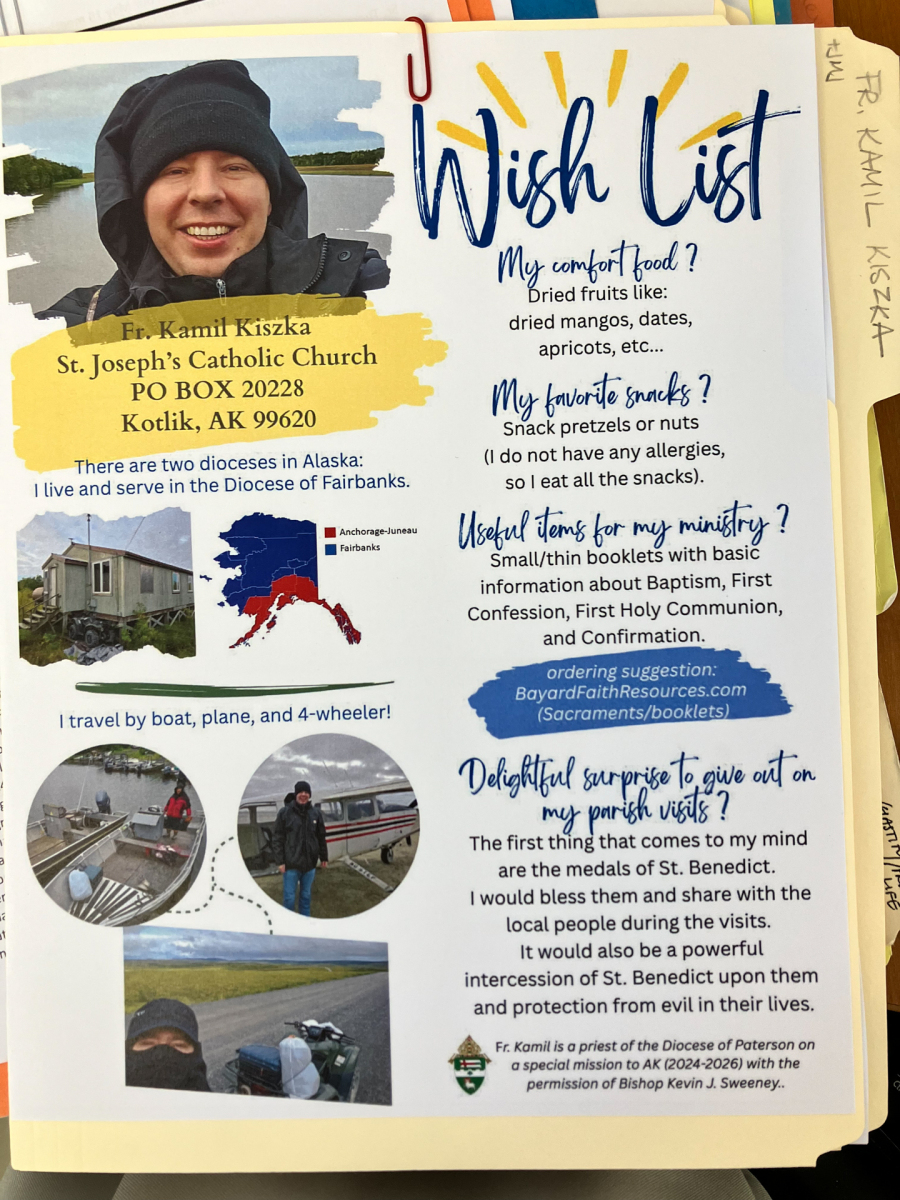 Wish List
Fr. Kamil Kiszka
St. Joseph's Catholic Church
PO BOX 20228
Kotlik, AK 99620
There are two dioceses in Alaska:
I live and serve in the Diocese of Fairbanks.
Anchorage-Juneau
Fairbanks
I travel by boat, plane, and 4-wheeler!
My comfort food ?
Dried fruits like:
dried mangos, dates,
apricots, etc...
My favorite snacks ?
Snack pretzels or nuts
(I do not have any allergies,
so I eat all the snacks).
Useful items for my ministry ?
Small/thin booklets with basic
information about Baptism, First
Confession, First Holy Communion,
and Confirmation.
ordering suggestion:
BayardFaithResources.com
(Sacraments/booklets)
Delightful surprise to give out on
my parish visits ?
The first thing that comes to my mind
are the medals of St. Benedict.
I would bless them and share with the
local people during the visits.
It would also be a powerful
intercession of St. Benedict upon them
and protection from evil in their lives.
Fr. Kamil is a priest of the Diocese of Paterson on
a special mission to AK (2024-2026) with the
permission of Bishop Kevin J. Sweeney..
FR. KAMIL KISZKA
LIFE